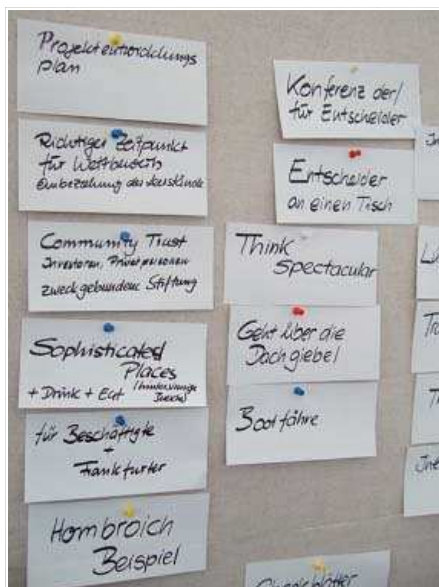 Projektentwicklungs
plan
Richtiger Zeitpunkt
für Wettbewerb
Einbeziehung der
Community Trust
Investoren, Privatpersonen
zweckgebundene Stiftung
Sophisticated
Places
+ Drink + Eat
für Beschäftigte
+
Frankfurter
Hombroich
Beispiel
Konferenz der/
für Entscheider
Entscheider
an einen Tisch
Think
Spectacular
Geht über die
Dachgiebel
Bootfähre